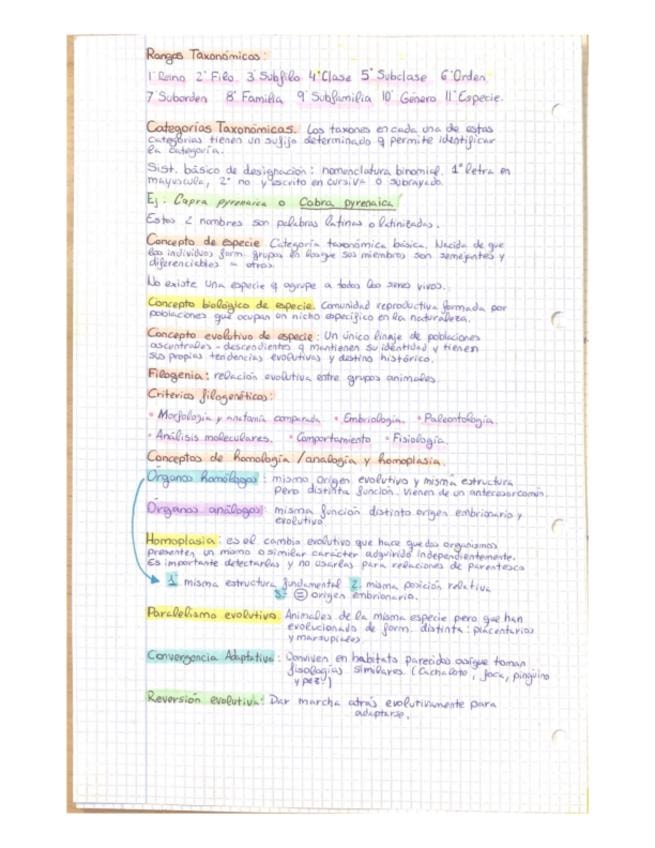 Rangos Taxonómicos:
1º Reino 2º Filo 3º Subfilo 4º Clase 5º Subclase 6º Orden
7º Suborden 8º Familia 9º Subfamilia 10º Género 11º Especie.
Categorías Taxonómicas. Los taxones en cada una de estas
categorías tienen un sufijo determinado q permite identificar
la categoría.
Sist. básico de designación: nomenclatura binomial. 1ª letra en
mayúscula, 2ª no y escrito en cursiva o subrayado.
Ej. Capra pyrenaica o Cabra pyrenaica
Estos 2 nombres son palabras latinas o latinizadas.
Concepto de especie Categoría taxonómica básica. Nacida de que
los individuos form. grupos en los que sus miembros son semejantes y
diferenciables a otros.
No existe una especie q agrupe a todos los seres vivos.
Concepto biológico de especie. Comunidad reproductiva formada por
poblaciones que ocupan un nicho específico en la naturaleza.
Concepto evolutivo de especie: Un único linaje de poblaciones
ascentrales-descendientes q mantienen su identidad y tienen
sus propias tendencias evolutivas y destino histórico.
Filogenia: relación evolutiva entre grupos animales.
Criterios filogenéticos:
• Morfología y anatomía comparada • Embriología. • Paleontología.
• Análisis moleculares. • Comportamiento • Fisiología.
Conceptos de homología /analogía y homoplasia.
Órganos homólogos: mismo origen evolutivo y misma estructura
pero distinta función. Vienen de un antecesor común.
Órganos análogos: misma función distinto origen embrionario y
evolutivo
Homoplasia: es el cambio evolutivo que hace que dos organismos
presenten un mismo o similar carácter adquirido independientemente.
Es importante detectarlas y no usarlas para relaciones de parentesco
1. misma estructura fundamental 2. misma posición relativa
3. = origen embrionario.
Paralelismo evolutivo: Animales de la misma especie pero que han
evolucionado de form. distinta: placentarios
y marsupiales.
Convergencia Adaptativa: Conviven en habitats parecidos asíque toman
fisologías similares. (Cachalote, foca, pingüino
y pez.)
Reversión evolutiva: Dar marcha atrás evolutivamente para
adaptarse.